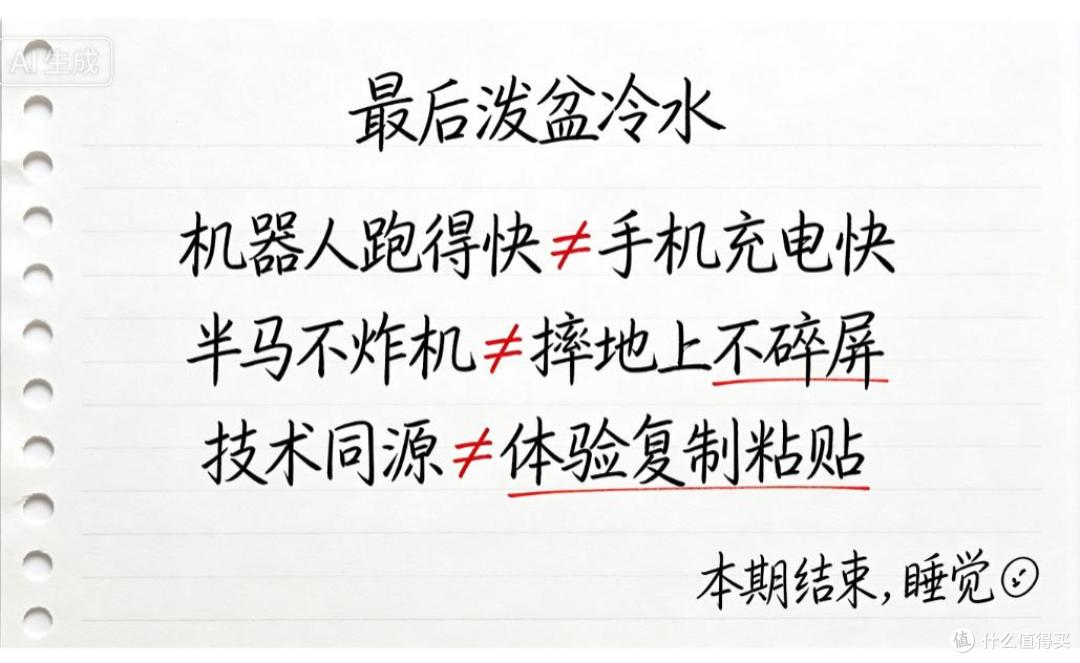 AI生成
最后泼盆冷水
机器人跑得快≠手机充电快
半马不炸机≠摔地上不碎屏
技术同源≠体验复制粘贴
本期结束,睡觉
值 什么值得买